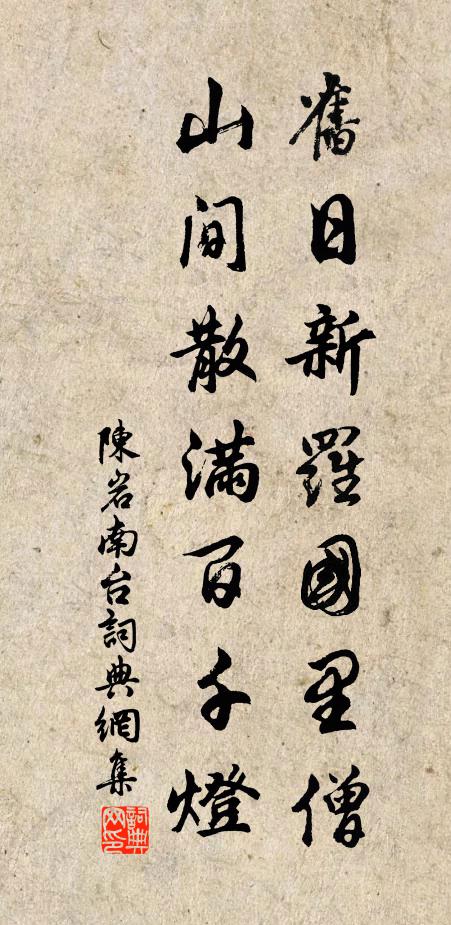 舊日新羅國里僧
山间散滿百千燈
陳岩南台詞典網集
詞典网印